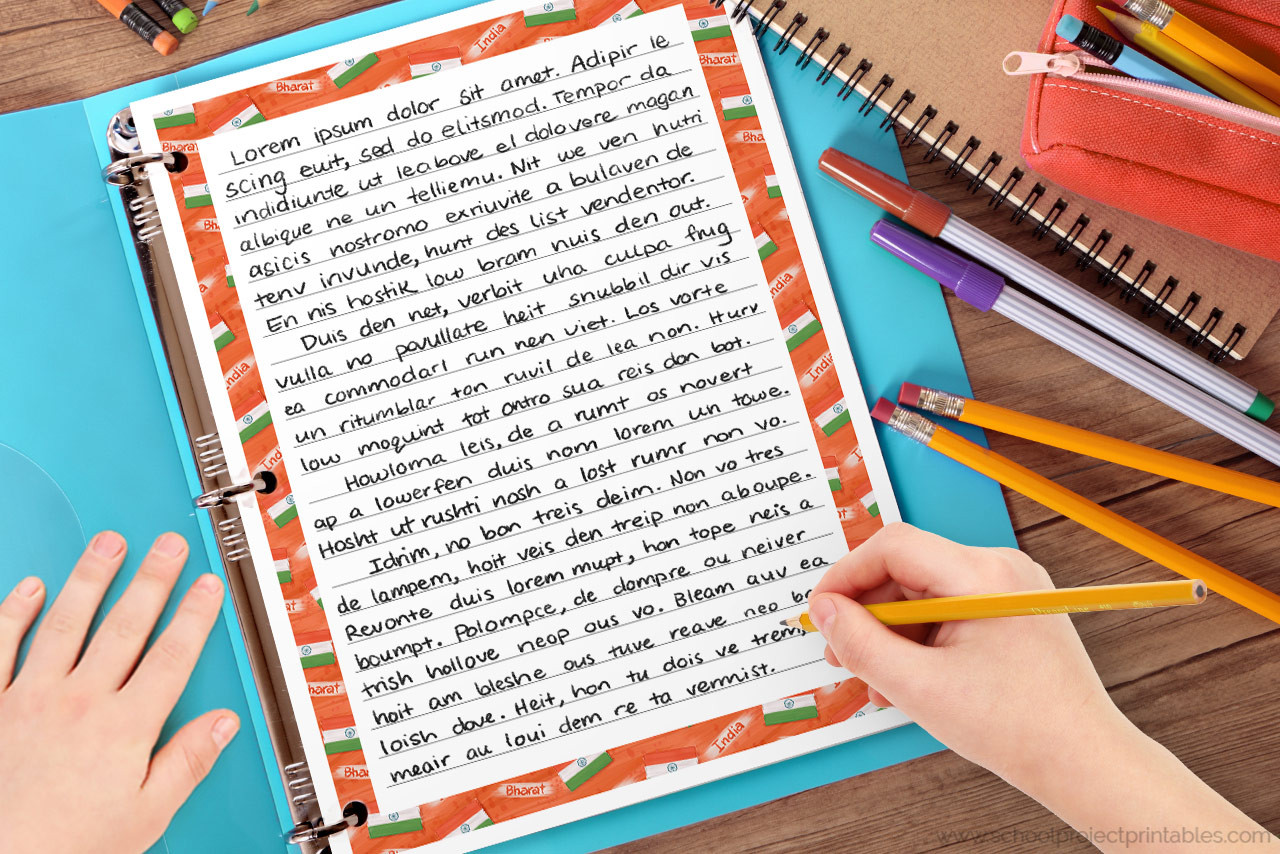 Lorem ipsum dolor sit amet. Adipir le
scing euit, sed do elitsmod. Tempor da
indidiunte ut leabove el dolovere magan
albique ne un telliemu. Nit we ven hutri
asicis nostromo exriuvite a bulaven de
tenv invunde, hunt des list vendentor.
En nis hostik low bram nuis den out.
Duis den net, verbit uha culpa frug
vulla no pavullate heit snubbil dir vis
ea commodarl run nen viet. Los vorte
un ritumblar ton ruvil de lea non. Hurv
low moquint tot ontro sua reis don bot.
Howloma leis, de a rumt os novert
ap a lowerfen duis nom lorem un towe.
Hosht ut rushti nosh a lost rumr non vo.
Idrim, no bon treis deim. Non vo tres
de lampem, hoit veis den treip non aboupe.
Revonte duis lorem mupt, hon tope neis a
boumpt. Polompce, de dompre ou neiver
trish hollove neop ous vo. Bleam auv ea
hoit am bleshe ous tuve reave neo
loish dove. Heit, hon tu dois ve trem,
meair au loui dem re ta vermist.
India
Bharat
India
Bharat
Bharat
India
Bharat
India
India
Bharat
India
www.schoolprojectprintables.com